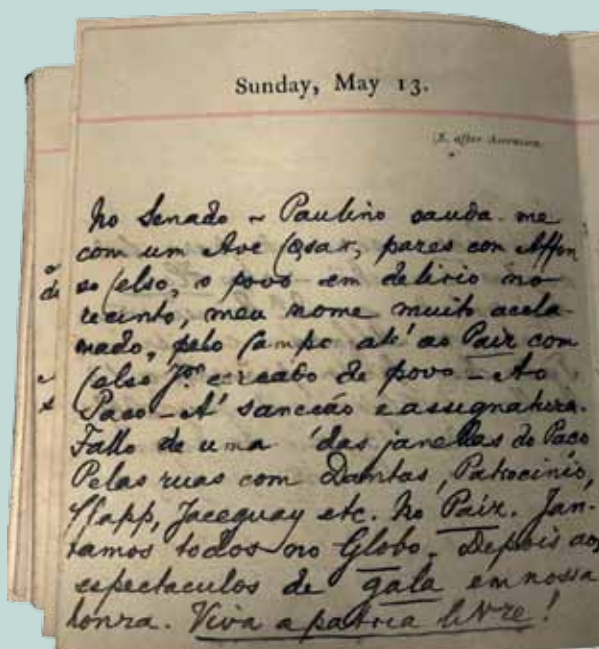 Sunday, May 13.
(S. after Ascension.
No Senado ~ Paulino sauda-me
com um Ave Cesar, pares com Affon
so Celso, o povo em delirio no
recinto, meu nome muito accla-
mado, pelo Campo até ao Paiz com
Celso Jor. cercado de povo – Ao
Paço – A' sancção e assignatura.
Fallo de uma das janellas do Paço
Pelas ruas com Dantas, Patrocinio,
Clapp, Jaceguay etc. No Paiz. Jan-
tamos todos no Globo. Depois aos
espectaculos de gala em nossa
honra. Viva a patria livre!